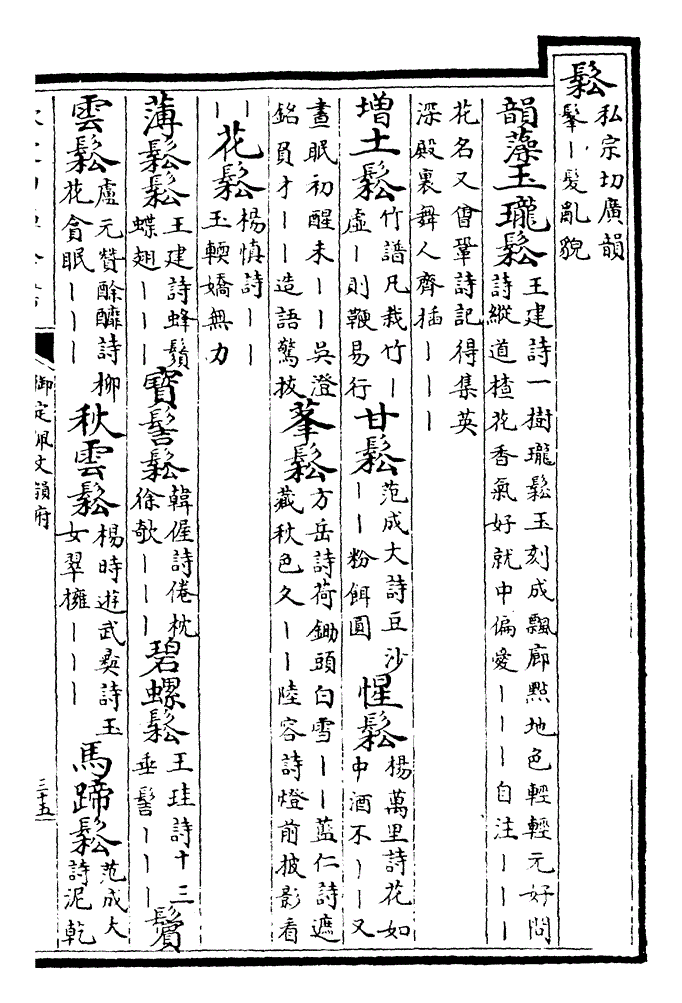 鬆私宗切廣韻
鬔｜髮亂貌
韻藻玉瓏鬆王建詩一樹瓏鬆玉刻成飄廊點地色輕輕元好問
詩縱道楂花香氣好就中偏愛｜｜｜自注｜｜｜
花名又曾鞏詩記得集英
深殿裏舞人齊插｜｜｜
增土鬆竹譜凡栽竹｜
虛｜則鞭易行
甘鬆范成大詩豆沙
｜｜粉餌圓
惺鬆楊萬里詩花如
中酒不｜｜又
晝眠初醒未｜｜吳澄
銘員才｜｜造語驚拔
髼鬆方岳詩荷鋤頭白雪｜｜藍仁詩遮
藏秋色久｜｜陸容詩燈前披影看
｜｜
花鬆楊慎詩｜｜
玉輭嬌無力
薄鬆鬆王建詩蜂鬚
蝶翅｜｜｜
寶髻鬆韓偓詩倦枕
徐欹｜｜｜
碧螺鬆王珪詩十三
垂髻｜｜｜
鬢
雲鬆盧元贊酴醿詩柳
花貪眠｜｜｜
秋雲鬆楊時遊武夷詩玉
女翠擁｜｜｜
馬蹄鬆范成大
詩泥乾
御定佩文韻府
三十五